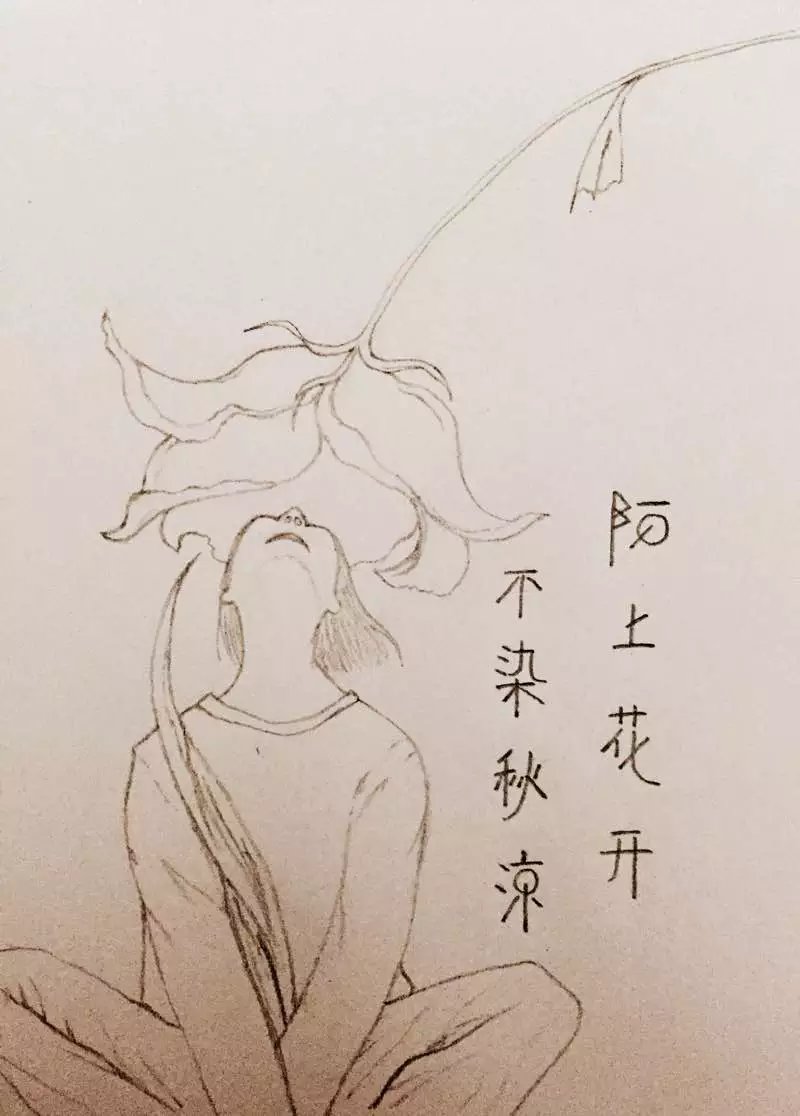 陌上花开
不染秋凉